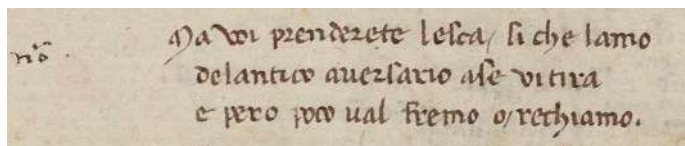 Ma voi prenderete lesca/ si che lamo
nõ.
delantico auersario ase vi tira
e pero poco ual fremo o/ rechiamo.